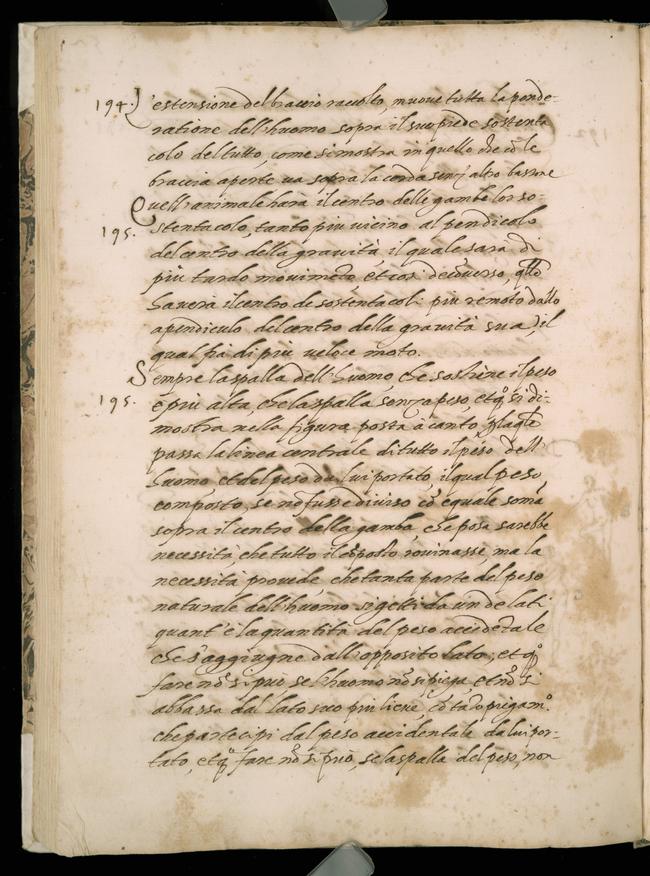 194. L'estensione del braccio racolto, muove tutta la ponde-
ratione dell'huomo sopra il suo piede sostenta
colo del tutto, come si mostra in quello che cō le
braccia aperte va sopra la corda senz' altro bastone
Quell'animale harà il centro delle gambe lor so-
195. stentacolo, tanto più vicino al pendicolo
del centro della gravità, il quale sarà di
più tardo movimēto et così decōverso, q̄llo
haverà il centro de sostentacoli più remoto dallo
apendiculo del centro della gravità sua, il
qual fia di più veloce moto.
Sempre la spalla dell'huomo che sostiene il peso
195. è più alta, che la spalla senza peso, et q̊ si di-
mostra nella figura posta à canto, p̱ la q̄le
passa la linea centrale di tutto il peso dell'
huomo et del peso da lui portato, il qual peso
composto, se nō fusse diviso cō equale soma
sopra il centro della gamba che posa sarebbe
necessità, che tutto il cōposto rovinasse, ma la
necessità provede, che tanta parte del peso
naturale dell'huomo si getti da un de lati
quant'è la quantità del peso accidētale
che s'aggiugne dall'opposito lato, et q̊
fare nō si può se l'huomo nō si piega, et nō si
abbassa dal lato suo più lieve cō tāto piegam.º
che partecipi dal peso accidentale da lui por-
tato, et q̊ fare nō si può, se la spalla del peso, non